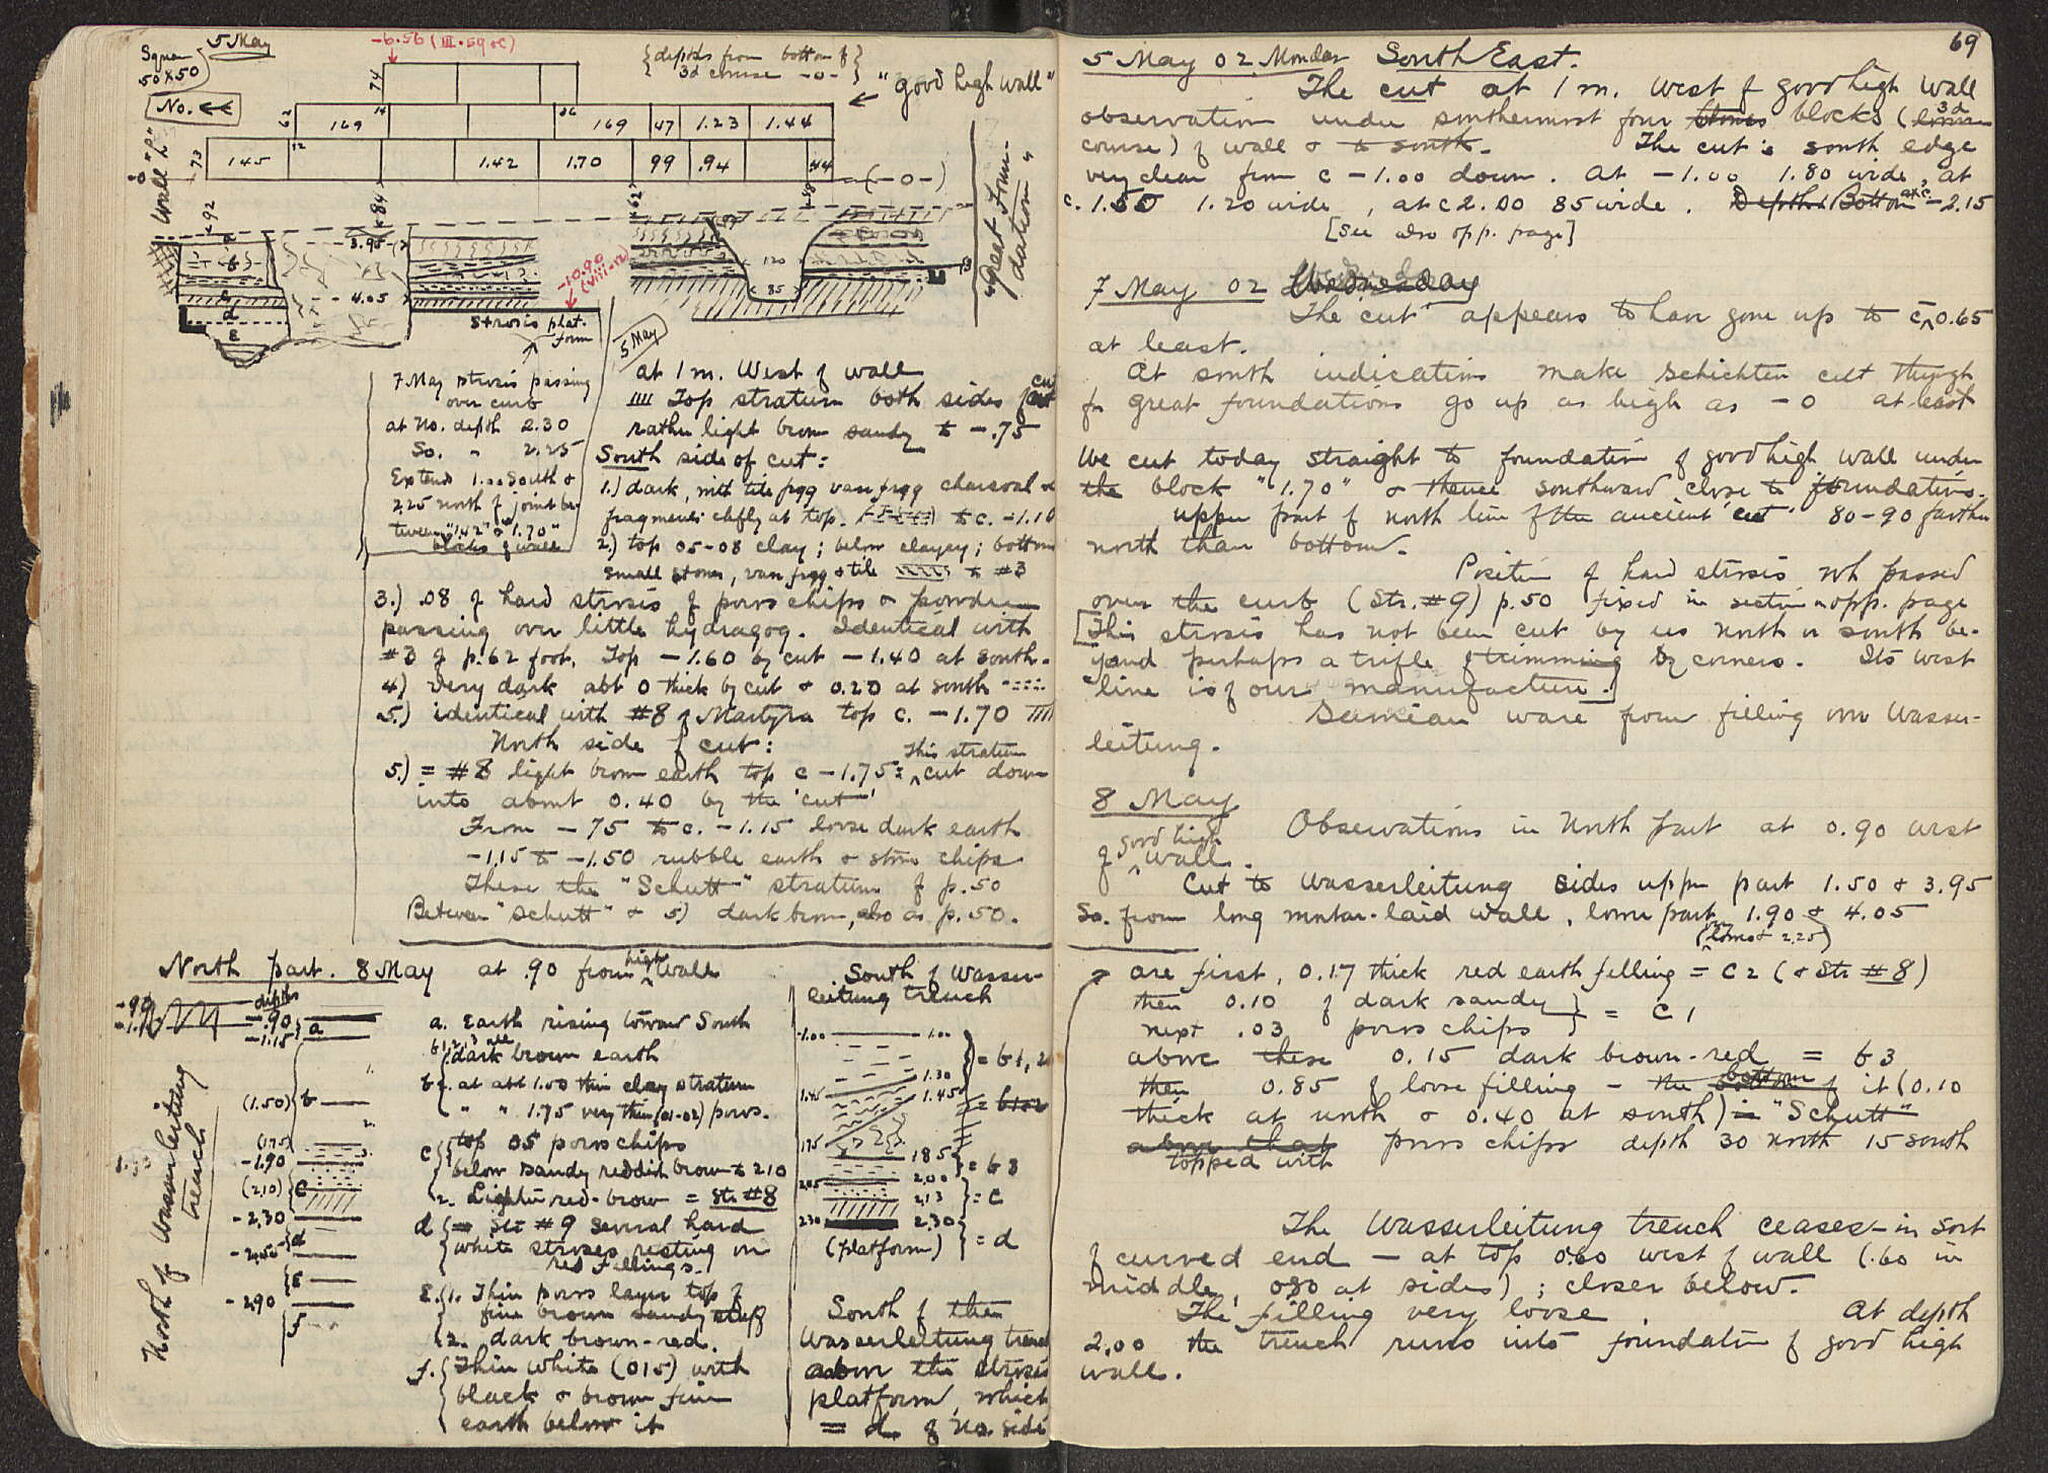 5 May
Square
50 x 50
-6.56 (III.59 c)
{depths from bottom of}
3d course -0-
"good high wall"
No.
74
62
169
14
26
169
47
1.23
1.44
73
145
12
1.42
1.70
99
.94
.44
-0
(-0-)
Wall "L"
92
84
62
a
b
c
d
e
3.95
4.05
-10.90
(VIII-12)
120
85
"Great Foun-
dation"
Strosis plat-
form
7 May strosis passing
over curb
at No. depth 2.30
So. " 2.25
Extends 1.00 South &
2.25 north of joint be-
tween "1.42" & "1.70"
blocks of wall
5 May
at 1 m. West of wall
Top stratum both sides of cut
rather light brown sandy to -.75
South side of cut:
1.) dark, with tile frgg vase frgg charcoal &
fragments chfly at top. to c. -1.10
2.) top 05-08 clay; below clayey; bottom
small stones, vase frgg & tile to #3
3.) .08 of hard strosis of poros chips & powder
passing over little hydragog. Identical with
#3 of p. 62 foot, Top -1.60 by cut -1.40 at south.
4) very dark abt 0 thick by cut & 0.20 at south
5.) identical with #8 of Martyra top c. -1.70
North side of cut:
5.) = #8 light brown earth top c -1.75: This stratum cut down
into about 0.40 by the 'cut'
From -75 to c. -1.15 loose dark earth
-1.15 to -1.50 rubble earth & stone chips
These the "Schutt" stratum of p. 50
Between "Schutt" & 5) dark brown, also as p. 50.
North part. 8 May at .90 from high wall
depths
-.90
-1.15
a
(1.50)
b
(1.75)
-1.90
(2.10)
c
-2.30
d
e
-2.90
f
North of Wasserleitung
trench
a. Earth rising toward South
b 1, 2, 3 all
dark brown earth
b2. at abt 1.50 thin clay stratum
" " 1.75 very thin (01-02) poros.
c top 05 poros chips
below sandy reddish brown to 2.10
2. Lighter red-brown = Str #8
d = Str #9 several hard
white stroses resting on
red fillings.
E. 1. Thin poros layer top of
fine brown sandy stuff
2. dark brown-red.
f. Thin white (015) with
black & brown fine
earth below it
South of Wasser-
leitung trench
-1.00
1.00
1.30
= b1, 2
1.45
1.45
175
185
= b3
2.05
2.00
2.13
= c
230
2.30
(platform)
= d
South of the
Wasserleitung trench
above the strosis
platform, which
= d of No. side
69
5 May 02 Monday South East.
The cut at 1 m. West of good high wall
observation under southernmost four stones blocks (lower 3d
course) of wall & to south. The cut's south edge
very clear from c -1.00 down. At -1.00 1.80 wide, at
c. 1.50 1.20 wide, at c 2.00 85 wide. Depth Bottom at c -2.15
[See also opp. page]
7 May 02 Wednesday
The 'cut' appears to have gone up to c -0.65
at least.
At south indications make Schichten cut through
for great foundations go up as high as -0 at least
We cut today straight to foundation of good high wall under
the block "1.70" & thence southward close to foundations.
Upper part of north line of the ancient 'cut' 80-90 farther
north than bottom.
Position of hard strosis wh passed
over the curb (Str. #9) p. 50 fixed in section on opp. page
[This strosis has not been cut by us north or south be-
yond perhaps a trifle of trimming by corners. Its west
line is of our manufacture.]
Samian ware from filling over Wasser-
leitung.
8 May
Observations in North part at 0.90 west
of good high wall.
Cut to Wasserleitung sides upper part 1.50 & 3.95
So. from long mortar-laid wall, lower part 1.90 & 4.05
are first, 0.17 thick red earth filling = C2 (& Str #8)
then 0.10 of dark sandy
next .03 poros chips } = C1
above these 0.15 dark brown-red = b3
then 0.85 of loose filling - the bottom of it (0.10
thick at north & 0.40 at south) is "Schutt"
above that
topped with poros chips depth 30 north 15 south
The Wasserleitung trench ceases - in sort
of curved end - at top 0.60 west of wall (.60 in
middle, 080 at sides); closer below.
The filling very loose. At depth
2.00 the trench runs into foundation of good high
wall.